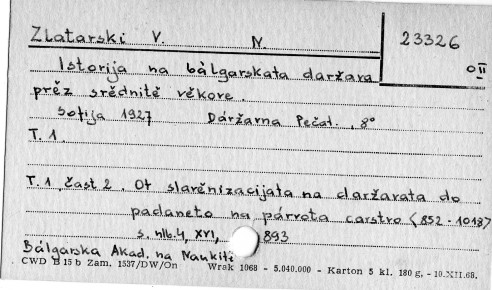 Zlatarski V. N. 23326
Istorija na bàlgarskata daržava O II
prěz srědnitě věkove.
Sofija 1927 Dàržavna Pečat. , 8°
T. 1
T. 1, čast 2. Ot slavěnizacijata na daržavata do
padaneto na pàrvoto carstvo (852-1018)
s. nlb. 4, XVI, 893
Bàlgarska Akad. na Naukitě
CWD B 15 b Zam. 1537/DW/On Wrak 1068 - 5.040.000 - Karton 5 kl. 180 g. - 10.XII.68.